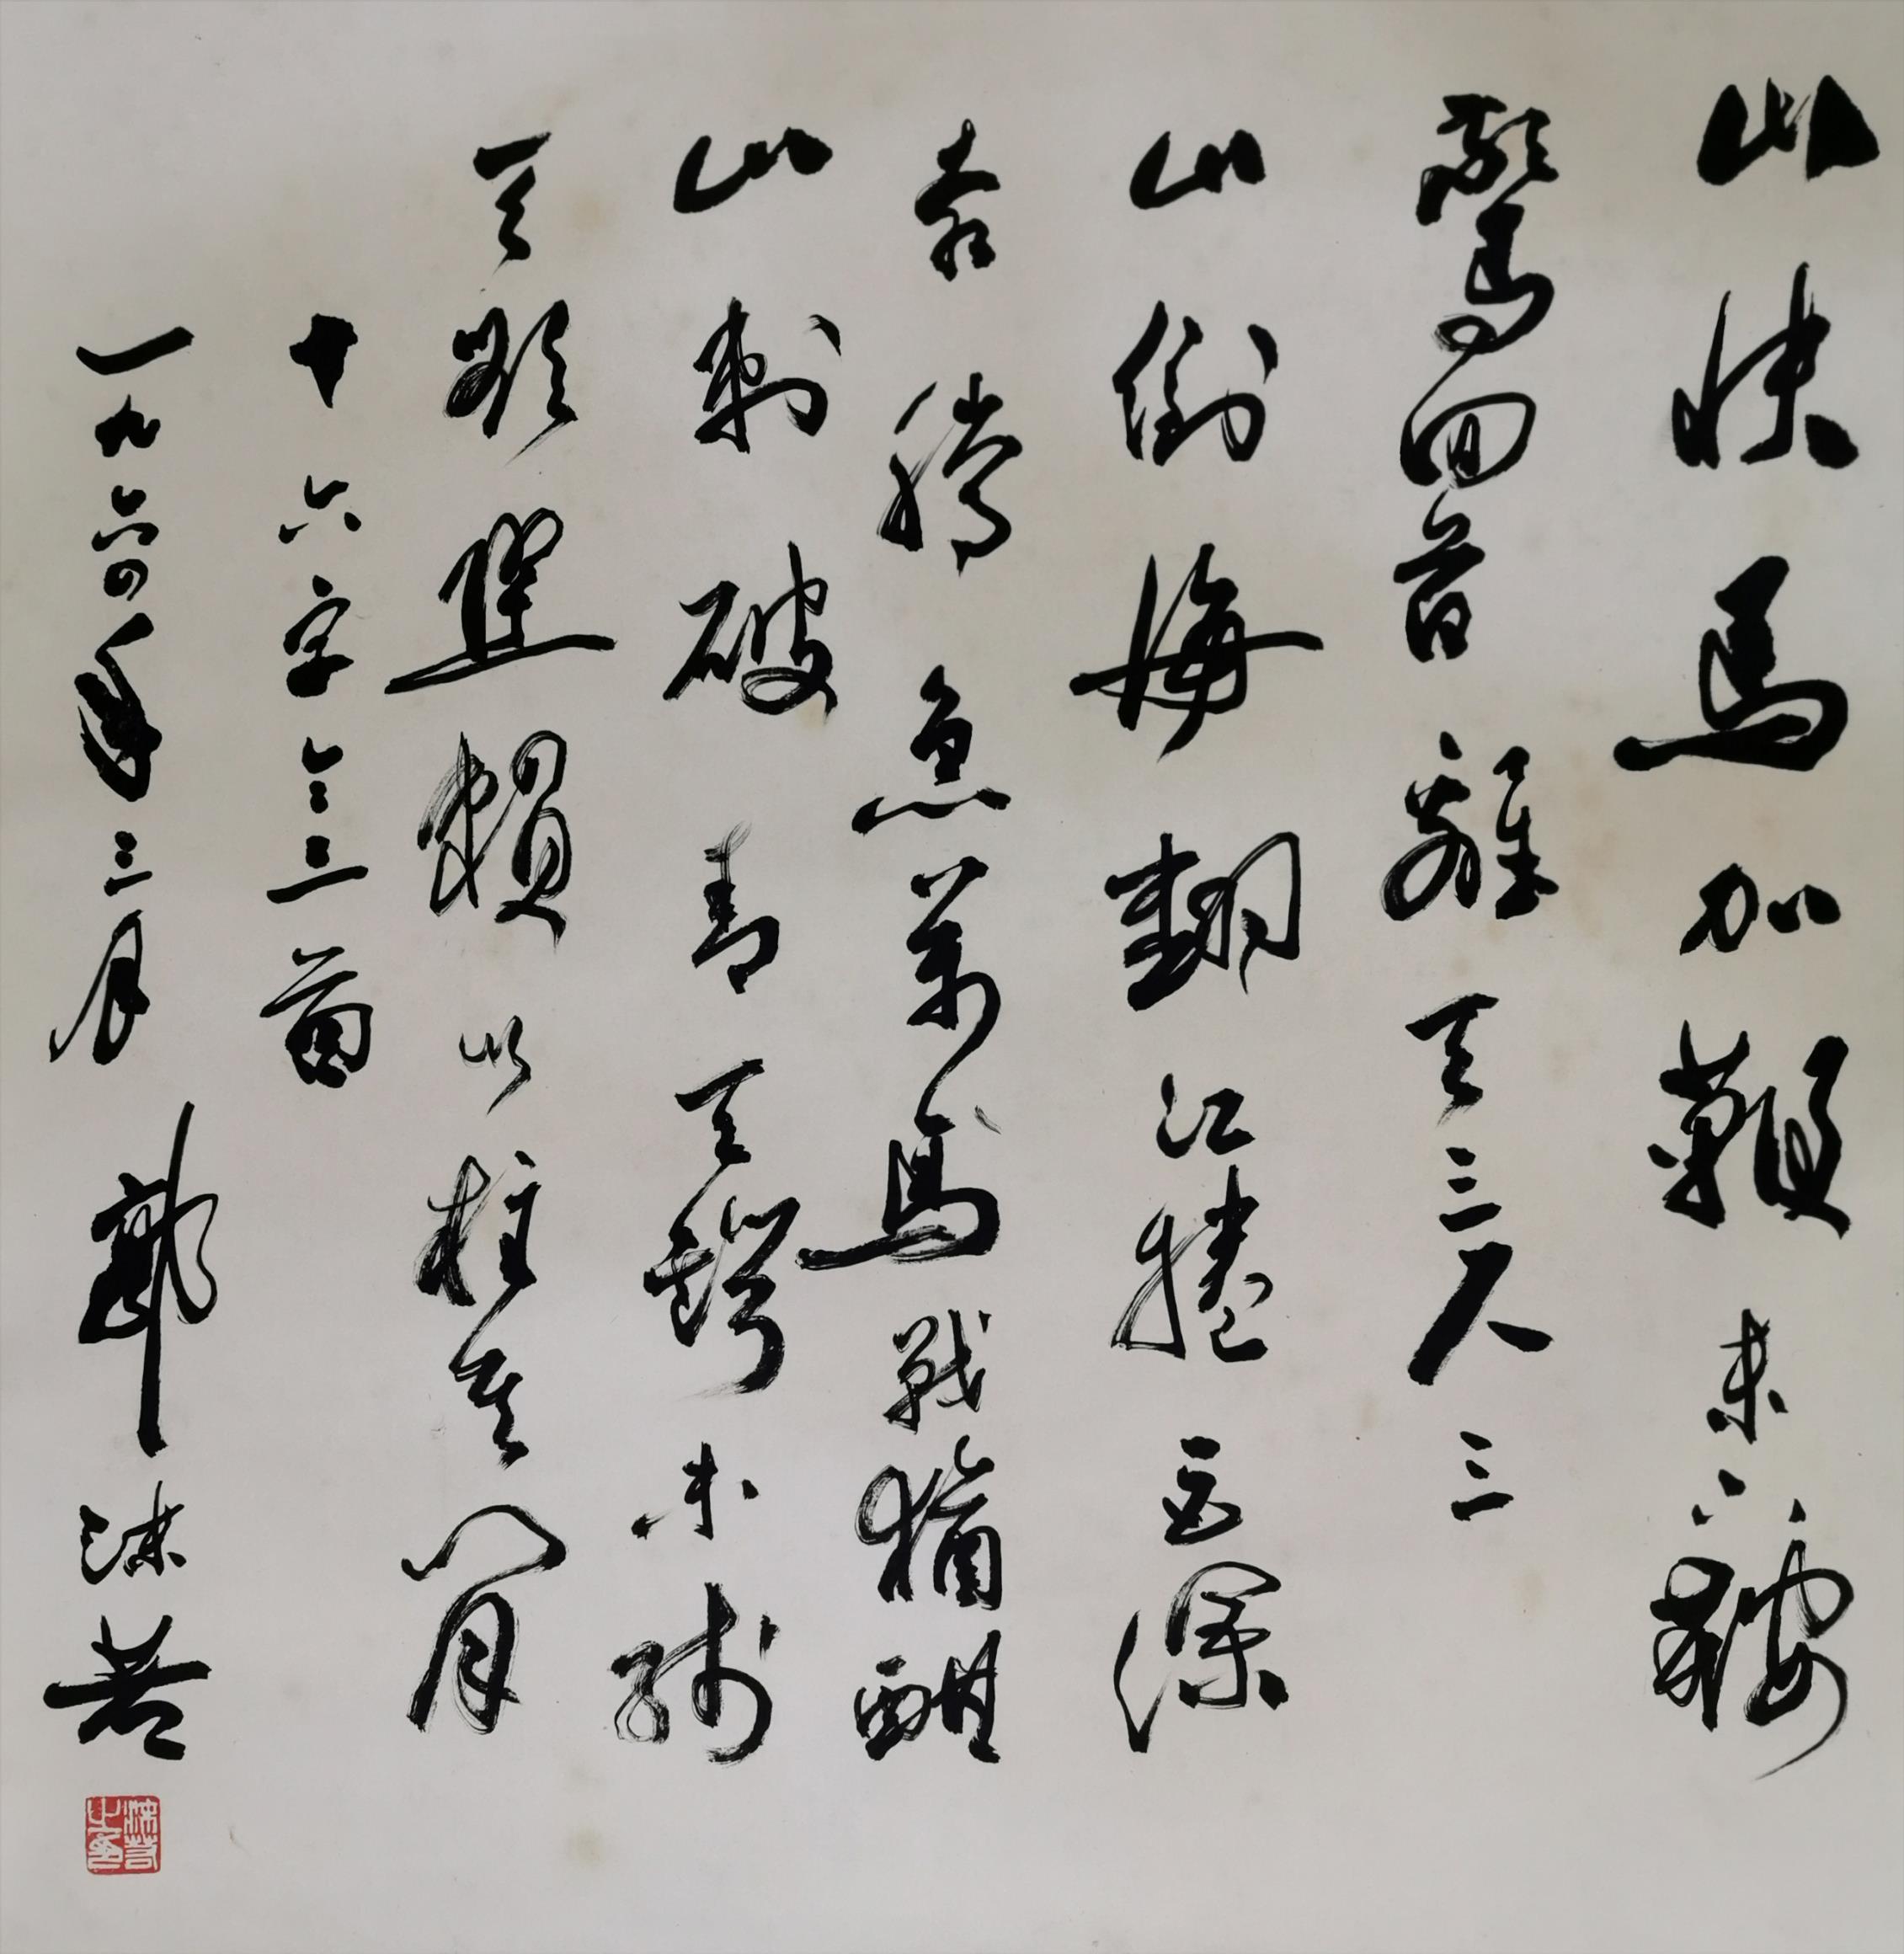 山快馬加鞭未下鞍
驚回首離天三尺三
山倒海翻江捲巨瀾
奔騰急萬馬戰猶酣
山刺破青天鍔未殘
天欲墜賴以柱其間
十六字令三首
一九六四年三月 郭沫若
沫若之印